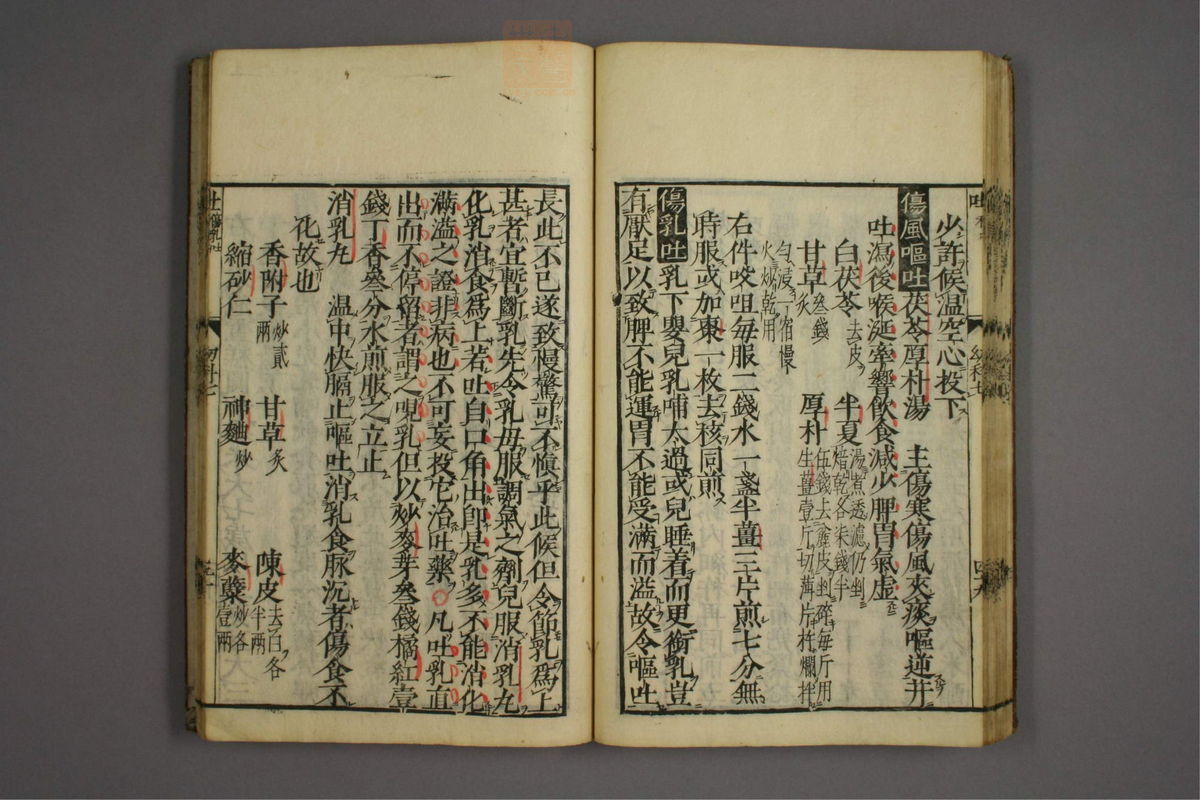 少許候温空心投下
傷風嘔吐茯苓厚朴湯 主傷寒傷風夾痰嘔逆并
吐瀉後喉涎牽響飲食減少脾胃氣虛
白茯苓去皮 半夏湯煮透濾仍剉焙乾各柒錢半
甘草叁錢炙 厚朴伍錢去麄皮剉碎每斤用生薑壹斤切薄片杵爛拌
勻浸一宿慢火炒乾用
右件㕮咀每服二錢水一盞半薑三片煎七分無
時服或加棗一枚去核同煎
傷乳吐乳下嬰兒乳哺太過或兒睡着而更銜乳豈
有厭足以致脾不能運胃不能受滿而溢故令嘔吐
長此不已遂致慢驚可不愼乎此候但令節乳爲上
甚者宜暫斷乳先令乳母服調氣之劑兒服消乳丸
化乳消食爲上若吐自口角出卽是乳多不能消化
滿溢之證非病也不可妄投它治吐藥○凡吐乳直
出而不停留者謂之哯乳但以炒麥芽叁錢橘紅壹
錢丁香叁分水煎服之立止
消乳丸 温中快膈止嘔吐消乳食脉沉者傷食不
化故也
香附子炒貳兩 甘草炙 陳皮去白各半兩
縮砂仁 神麯炒 麥蘖炒各壹兩
吐傷乳吐
幼科七